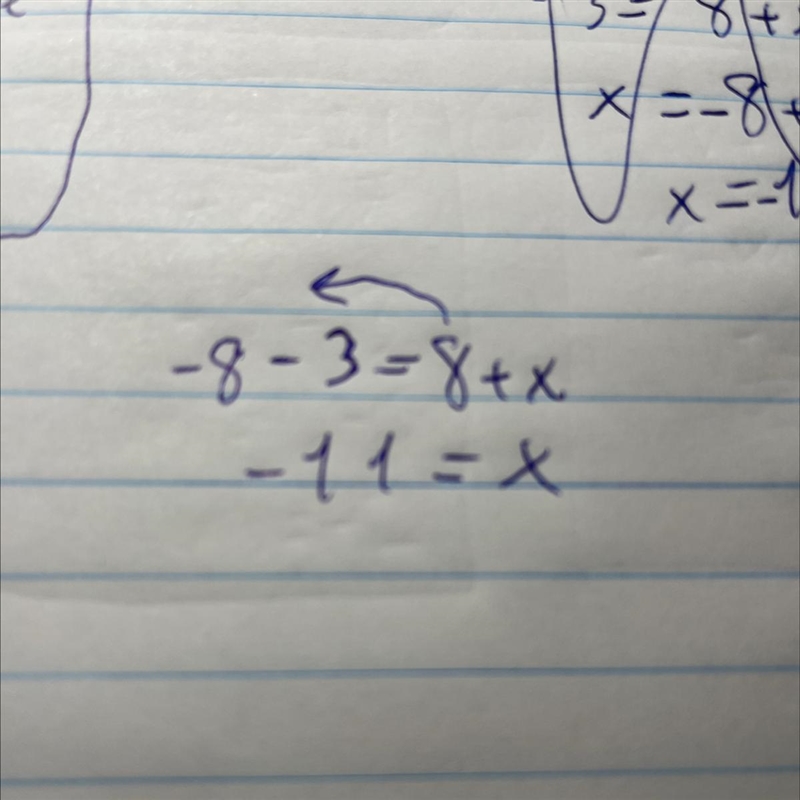 x = -8 +
x = -1
-8 - 3 = 8 + x
-11 = x